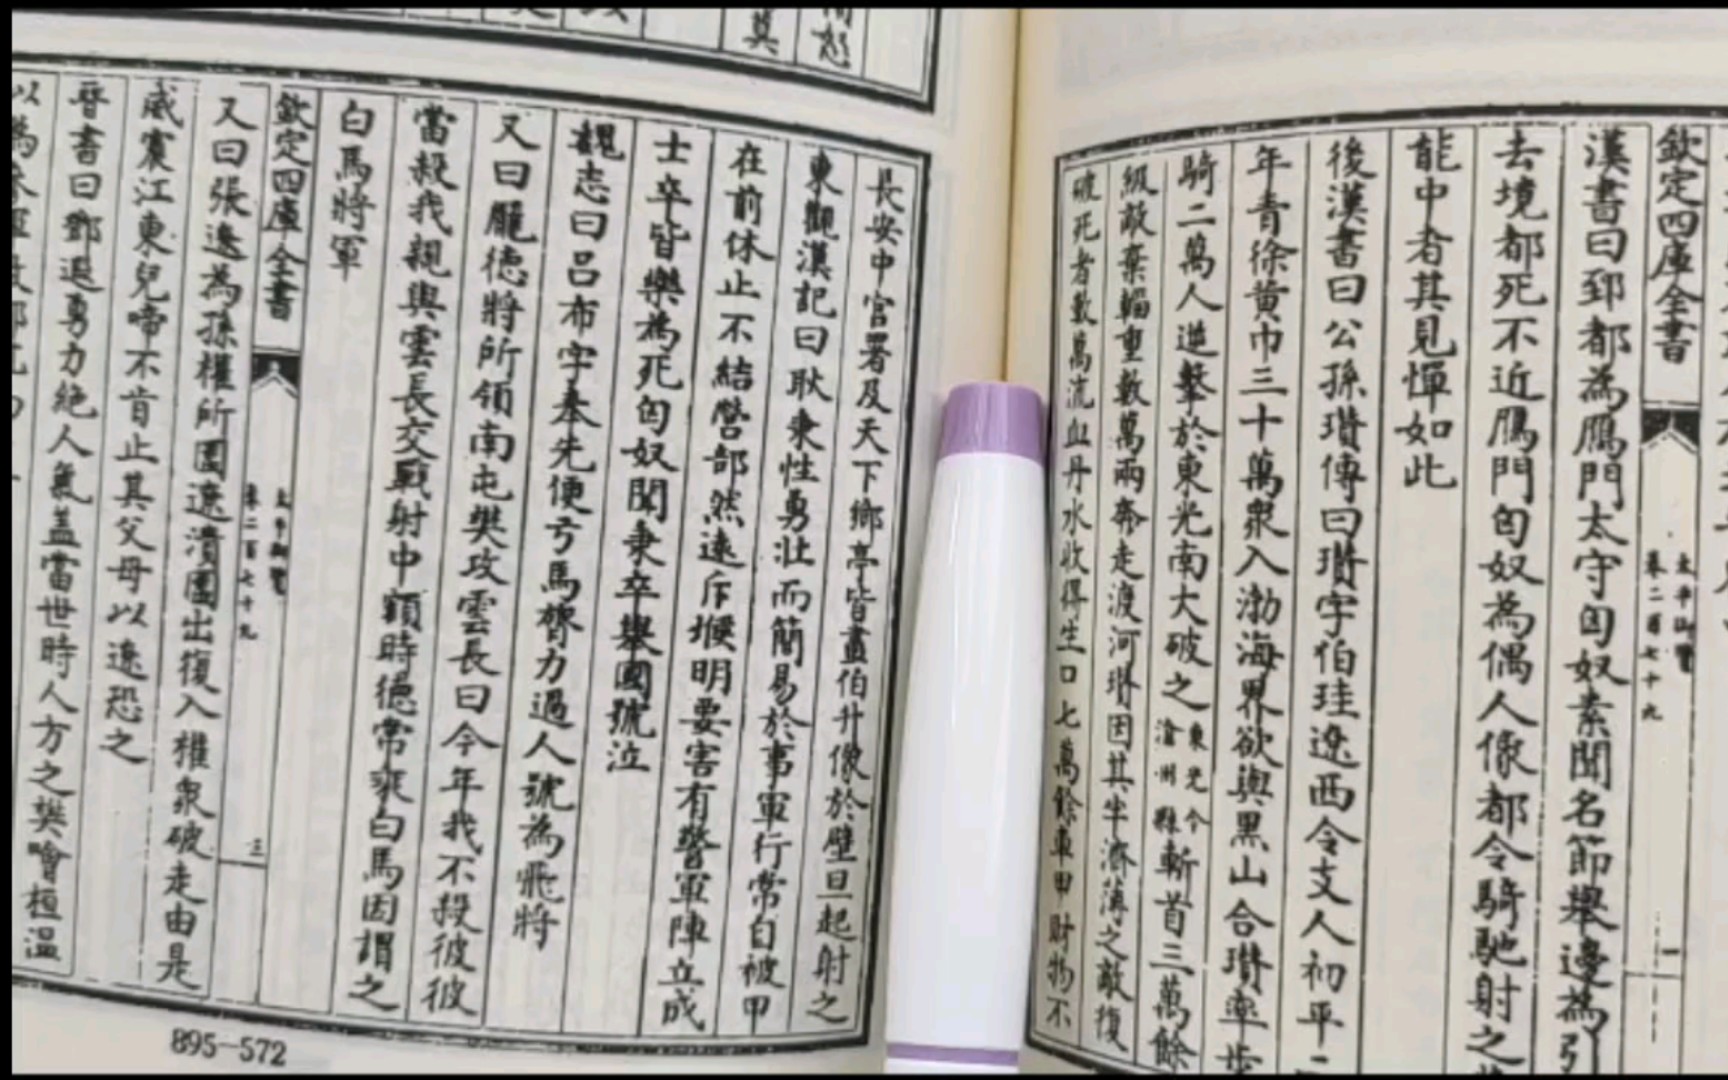 欽定四庫全書
太平御覽
卷二百七十九
一
漢書曰郅都為鴈門太守匈奴素聞名節舉邊為引
去境都死不近鴈門匈奴為偶人像都令騎馳射之
能中者其見憚如此
後漢書曰公孫瓚傳曰瓚字伯珪遼西令支人初平二
年青徐黃巾三十萬衆入渤海界欲與黑山合瓚率步
騎二萬人逆擊於東光南大破之東光今滄州縣斬首三萬餘
級敵棄輜重數萬兩奔走渡河瓚因其半濟薄之敵復
破死者數萬流血丹水收得生口七萬餘車甲財物不
長安中官署及天下鄉亭皆畫伯升像於壁旦起射之
東觀漢記曰耿秉性勇壯而簡易於事軍行常自被甲
在前休止不結營部然遠斥堠明要害有警軍陣立成
士卒皆樂為死匈奴聞秉卒舉國號泣
魏志曰呂布字奉先便弓馬膂力過人號為飛將
又曰龐德將所領南屯樊攻雲長曰今年我不殺彼彼
當殺我親與雲長交戰射中額時德常乘白馬因謂之
白馬將軍
欽定四庫全書
太平御覽
卷二百七十九
三
又曰張遼為孫權所圍遼潰圍出復入權衆破走由是
威震江東兒啼不肯止其父母以遼恐之
晉書曰鄧遐勇力絶人氣蓋當世時人方之樊噲桓温
895-572